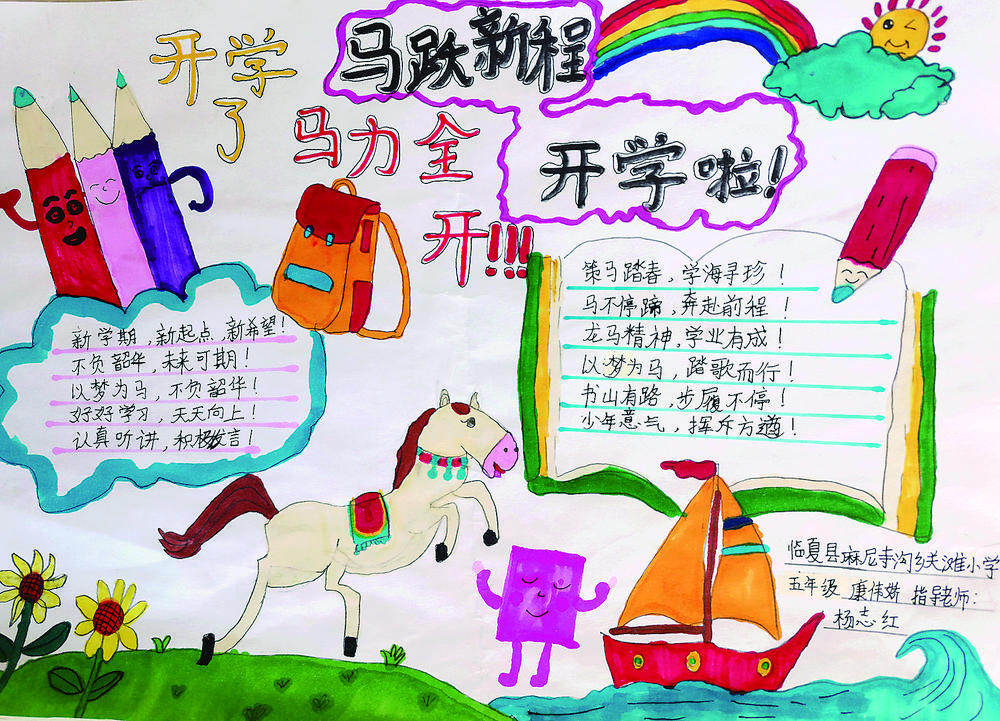 开学了
马跃新程
马力全开!!!
开学啦!
策马踏春，学海寻珍！
马不停蹄，奔赴前程！
龙马精神，学业有成！
以梦为马，踏歌而行！
书山有路，步履不停！
少年意气，挥斥方遒！
新学期，新起点，新希望！
不负韶华，未来可期！
以梦为马，不负韶华！
好好学习，天天向上！
认真听讲，积极发言！
临夏县麻尼寺沟乡关滩小学
五年级 康伟娇 指导老师：
杨志红